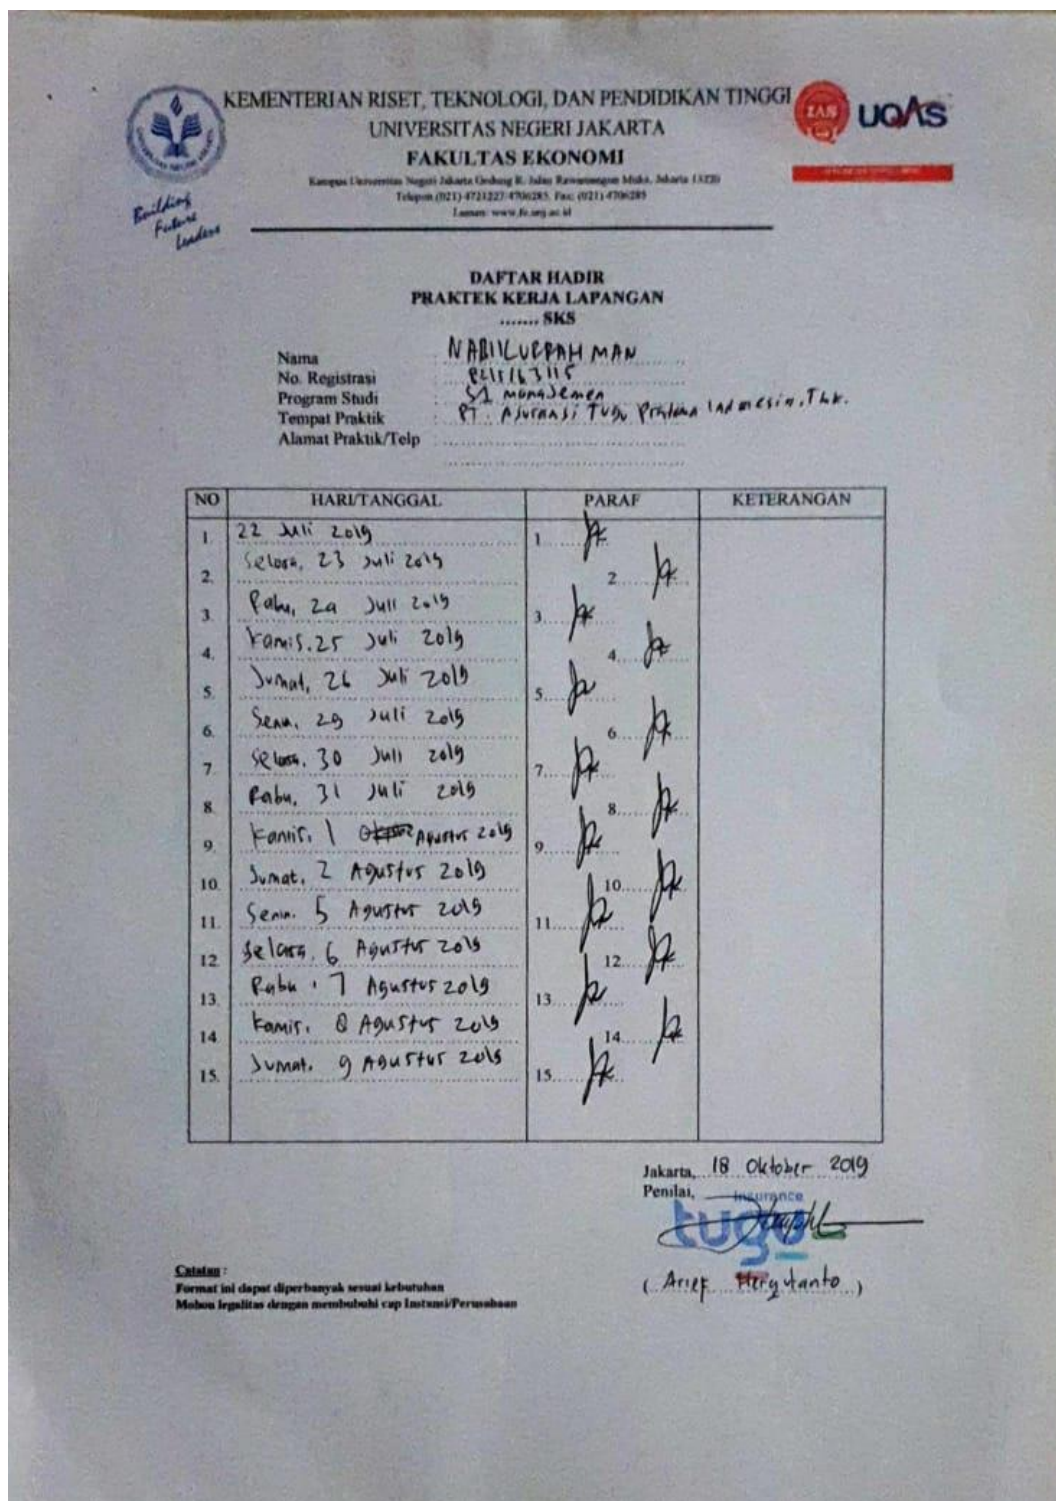 KEMENTERIAN RISET, TEKNOLOGI, DAN PENDIDIKAN TINGGI
UNIVERSITAS NEGERI JAKARTA
FAKULTAS EKONOMI
Kampus Universitas Negeri Jakarta Gedung R, Jalan Rawamangun Muka, Jakarta 13220
Telepon (021) 4721227/4706285, Fax: (021) 4706285
Laman: www.fe.unj.ac.id
IAS
UQAS
Building
Future
Leaders
DAFTAR HADIR
PRAKTEK KERJA LAPANGAN
....... SKS
Nama : NABIILURRAHMAN
No. Registrasi : 8215163115
Program Studi : S1 Manajemen
Tempat Praktik : PT. Asuransi Tugu Pratama Indonesia, Tbk.
Alamat Praktik/Telp :
NO HARI/TANGGAL PARAF KETERANGAN
1. 22 Juli 2019 1
2. Selasa, 23 Juli 2019 2
3. Rabu, 24 Juli 2019 3.
4. Kamis, 25 Juli 2019 4.
5. Jumat, 26 Juli 2019 5.
6. Senin, 29 Juli 2019 6.
7. Selasa, 30 Juli 2019 7.
8. Rabu, 31 Juli 2019 8.
9. Kamis, 1 Agustus 2019 9.
10. Jumat, 2 Agustus 2019 10.
11. Senin, 5 Agustus 2019 11.
12. Selasa, 6 Agustus 2019 12.
13. Rabu, 7 Agustus 2019 13.
14. Kamis, 8 Agustus 2019 14.
15. Jumat, 9 Agustus 2019 15.
Jakarta, 18 Oktober 2019
Penilai,
insurance
tugu
( Arief Hergutanto )
Catatan :
Format ini dapat diperbanyak sesuai kebutuhan
Mohon legalitas dengan membubuhi cap Instansi/Perusahaan